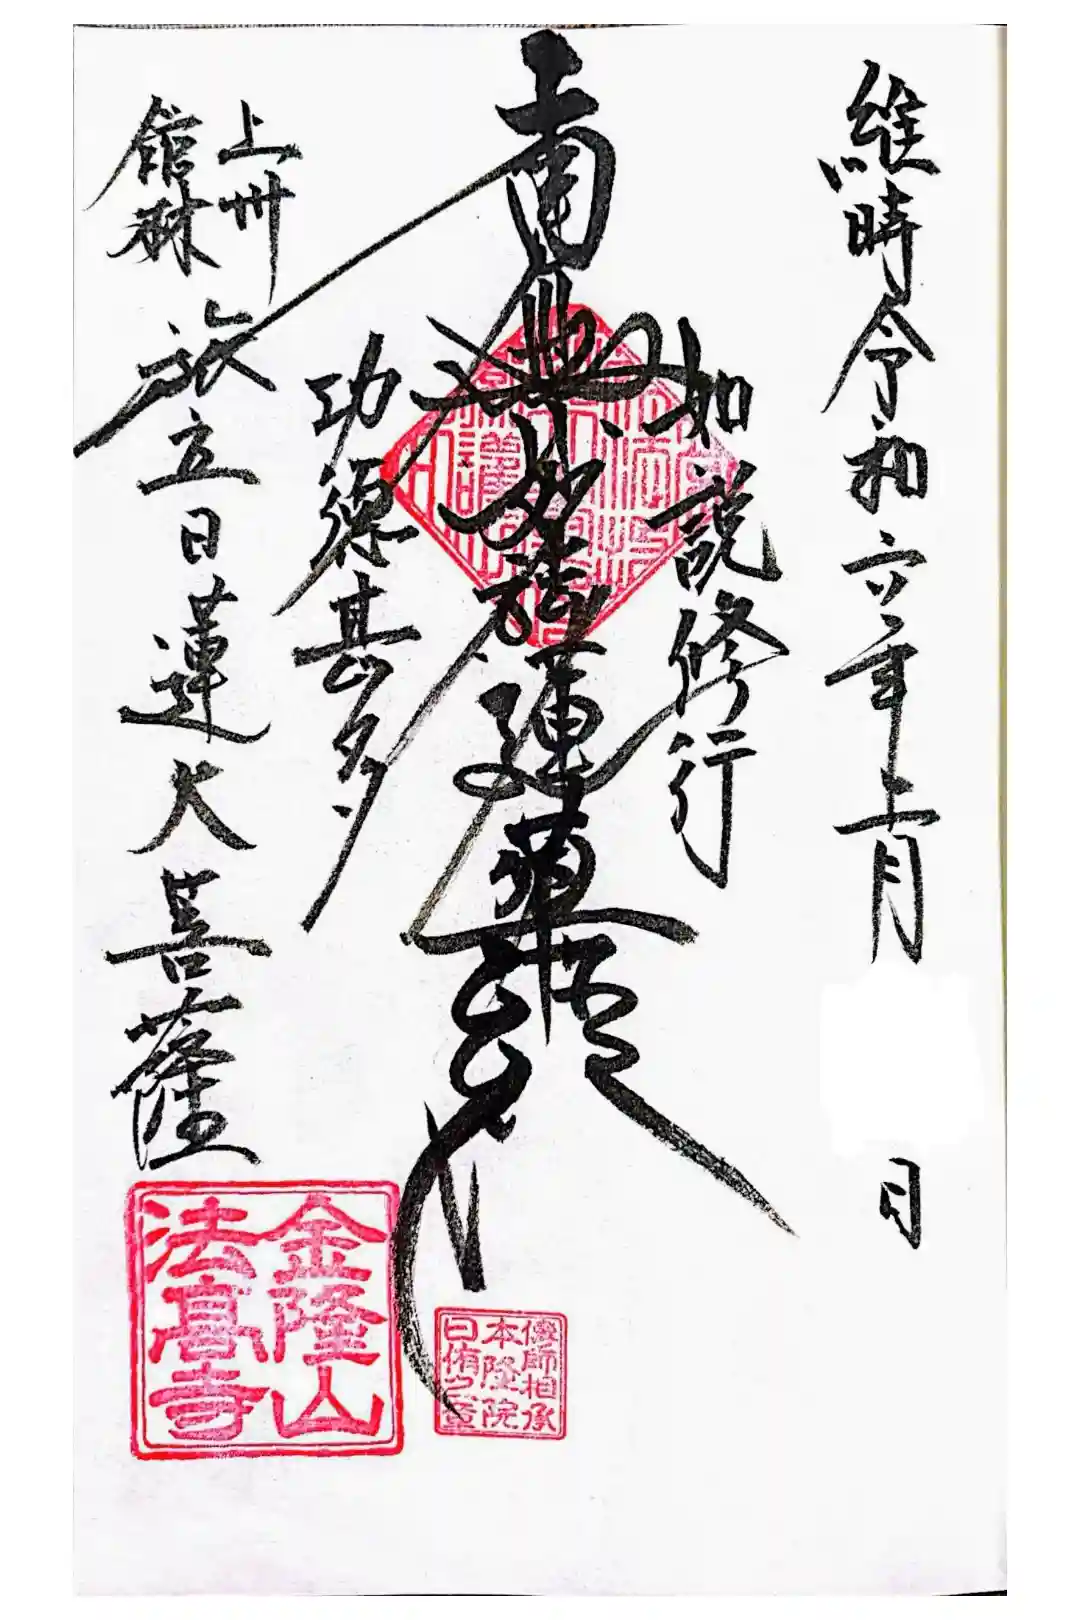 維時令和六年上月
日
如説修行
南無妙法蓮華経
功徳甚多
上州
館林
旅立日蓮大菩薩
金隆山
法高寺
師相承
本隆院
日